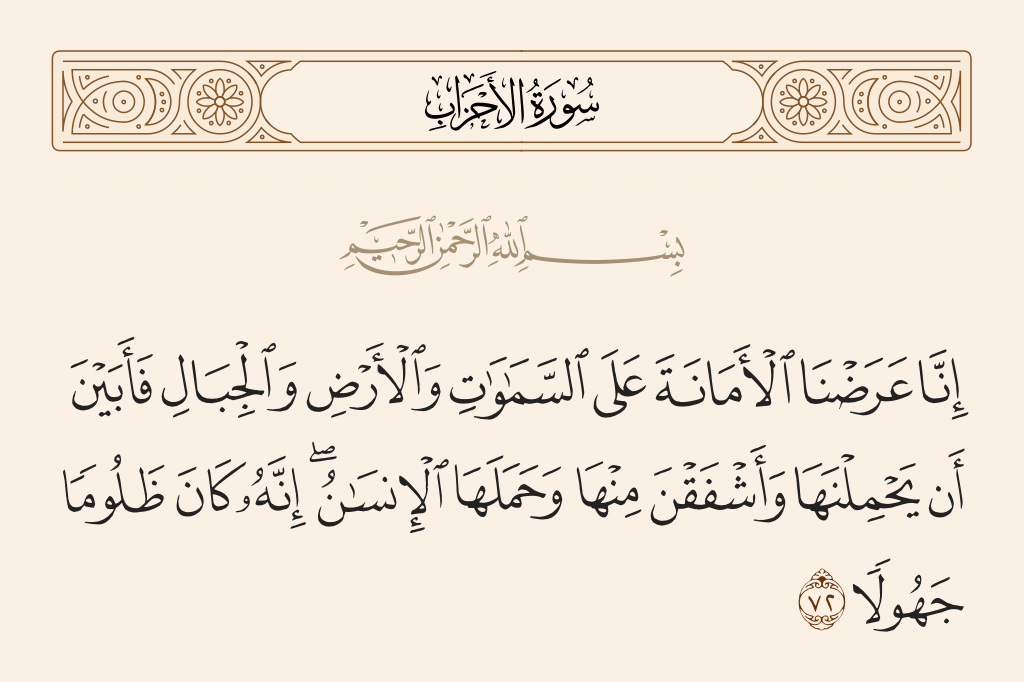 سُورَةُ الأَحْزَابِ
بِسْمِ ٱللَّهِ ٱلرَّحْمَٰنِ ٱلرَّحِيمِ
إِنَّا عَرَضْنَا ٱلْأَمَانَةَ عَلَى ٱلسَّمَٰوَٰتِ وَٱلْأَرْضِ وَٱلْجِبَالِ فَأَبَيْنَ
أَن يَحْمِلْنَهَا وَأَشْفَقْنَ مِنْهَا وَحَمَلَهَا ٱلْإِنسَٰنُ ۖ إِنَّهُۥ كَانَ ظَلُومًا
جَهُولًا ٧٢